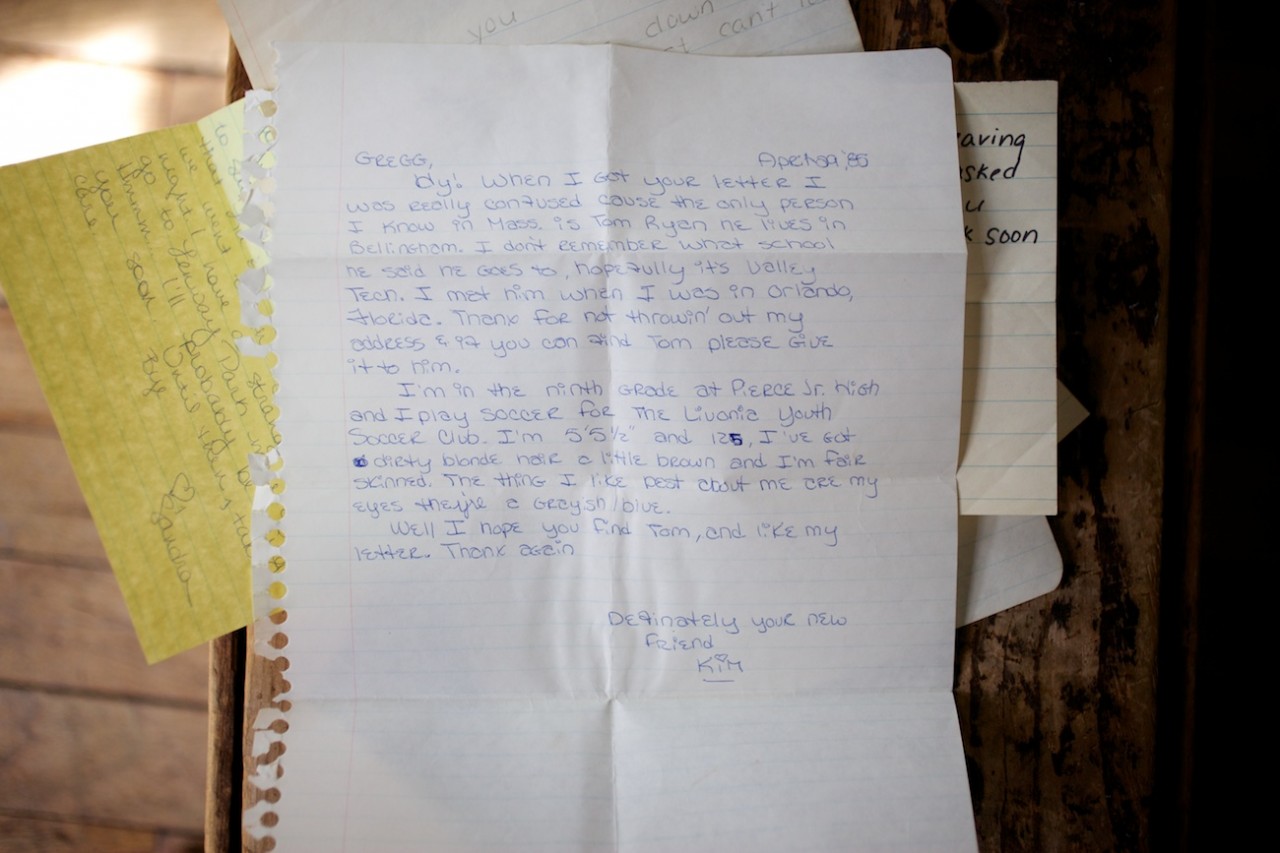 you
down
cant
GREGG,
April 29, '85
Hy! When I Got your letter I
was really confused cause the only person
I know in Mass. is Tom Ryan he lives in
Bellingham. I don't remember what school
he said he goes to, hopefully it's Valley
Tech. I met him when I was in Orlando,
Florida. Thanx for not throwin' out my
address & if you can find Tom please Give
it to him.
I'm in the ninth Grade at Pierce Jr. High
and I play soccer for The Livonia Youth
Soccer Club. I'm 5'5½" and 125, I've Got
dirty blonde hair a little brown and I'm fair
skinned. The thing I like best about me are my
eyes they're a Grayish/blue.
Well I hope you find Tom, and like my
letter. Thanx again
Definately your new
Friend
Kim
aving
sked
u
k soon
to
that
we went
might have a
go to Fenway Park
Hmmm I'll probably be
you soon. Until then, take
care
Bye
♡ Sandra